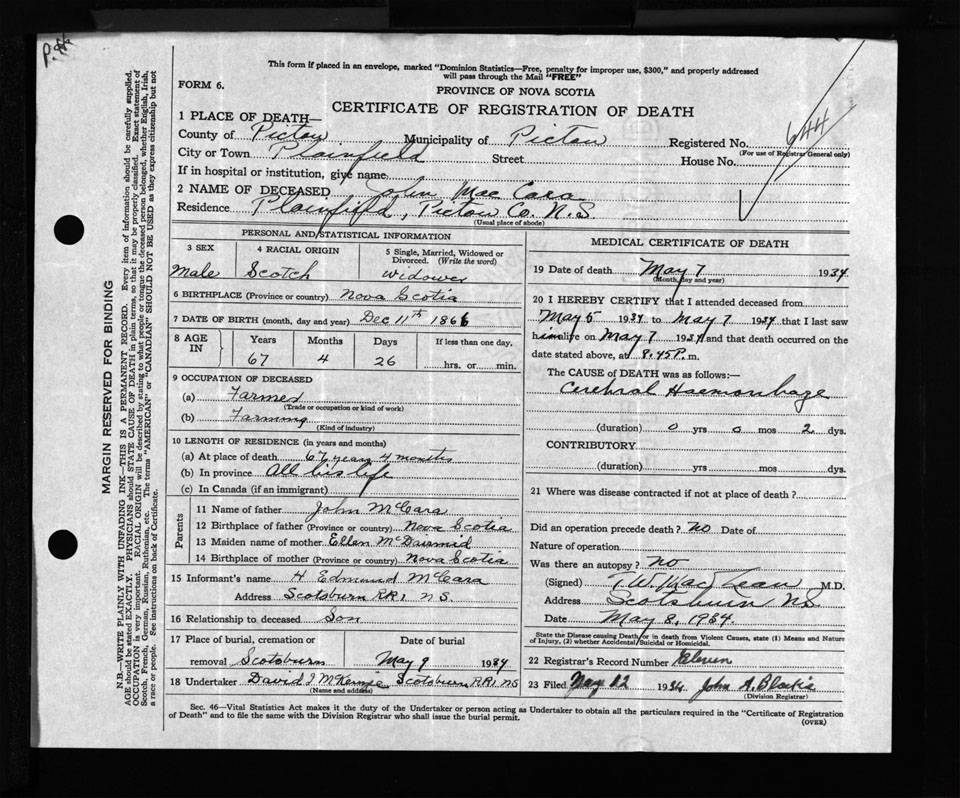 This form if placed in an envelope, marked "Dominion Statistics—Free, penalty for improper use, $300," and properly addressed
will pass through the Mail "FREE"
FORM 6.
PROVINCE OF NOVA SCOTIA
CERTIFICATE OF REGISTRATION OF DEATH
1 PLACE OF DEATH—
County of Pictou Municipality of Pictou Registered No. 644
(For use of Registrar General only)
City or Town Plainfield Street House No.
If in hospital or institution, give name
2 NAME OF DECEASED John Mac Cara
Residence Plainfield, Pictou Co. N.S.
(Usual place of abode)
PERSONAL AND STATISTICAL INFORMATION
3 SEX 4 RACIAL ORIGIN 5 Single, Married, Widowed or Divorced. (Write the word)
Male Scotch widower
6 BIRTHPLACE (Province or country) Nova Scotia
7 DATE OF BIRTH (month, day and year) Dec 11th 1866
8 AGE IN Years Months Days If less than one day,
67 4 26 hrs. or min.
9 OCCUPATION OF DECEASED
(a) Farmer
(Trade or occupation or kind of work)
(b) Farming
(Kind of industry)
10 LENGTH OF RESIDENCE (in years and months)
(a) At place of death 67 years 4 months
(b) In province All his life
(c) In Canada (if an immigrant)
Parents
11 Name of father John McCara
12 Birthplace of father (Province or country) Nova Scotia
13 Maiden name of mother Ellen McDairmid
14 Birthplace of mother (Province or country) Nova Scotia
15 Informant's name H. Edmund McCara
Address Scotsburn RR1 N.S.
16 Relationship to deceased Son
17 Place of burial, cremation or removal Scotsburn Date of burial May 9 1934
18 Undertaker David J McKenzie Scotsburn R.R.1 NS
(Name and address)
MEDICAL CERTIFICATE OF DEATH
19 Date of death May 7 1934
(Month, day and year)
20 I HEREBY CERTIFY that I attended deceased from
May 5 1934 to May 7 1934 that I last saw
him alive on May 7 1934 and that death occurred on the
date stated above, at 8.45 P. m.
The CAUSE of DEATH was as follows:—
Cerebral Haemorrhage
(duration) 0 yrs 0 mos 2 dys.
CONTRIBUTORY
(duration) yrs. mos. dys.
21 Where was disease contracted if not at place of death?
Did an operation precede death? No Date of
Nature of operation
Was there an autopsy? No
(Signed) T.W. MacLean M.D.
Address Scotsburn NS
Date May 8, 1934
State the Disease causing Death, or in death from Violent Causes, state (1) Means and Nature
of Injury, (2) whether Accidental, Suicidal or Homicidal.
22 Registrar's Record Number Eleven
23 Filed May 22 1934 John A. Blaikie
(Division Registrar)
Sec. 46—Vital Statistics Act makes it the duty of the Undertaker or person acting as Undertaker to obtain all the particulars required in the "Certificate of Registration
of Death" and to file the same with the Division Registrar who shall issue the burial permit.
(OVER)
MARGIN RESERVED FOR BINDING
N.B.—WRITE PLAINLY WITH UNFADING INK—THIS IS A PERMANENT RECORD. Every item of information should be carefully supplied.
AGE should be stated EXACTLY. PHYSICIANS should STATE CAUSE OF DEATH in plain terms, so that it may be properly classified. Exact statement of
OCCUPATION is very important. RACIAL ORIGIN will be described by stating to what people or tongue the deceased person belonged, whether English, Irish,
Scotch, French, German, Russian, Ruthenian, etc. The terms "AMERICAN" or "CANADIAN" SHOULD NOT BE USED as they express citizenship but not
a race or people. See instructions on back of Certificate.